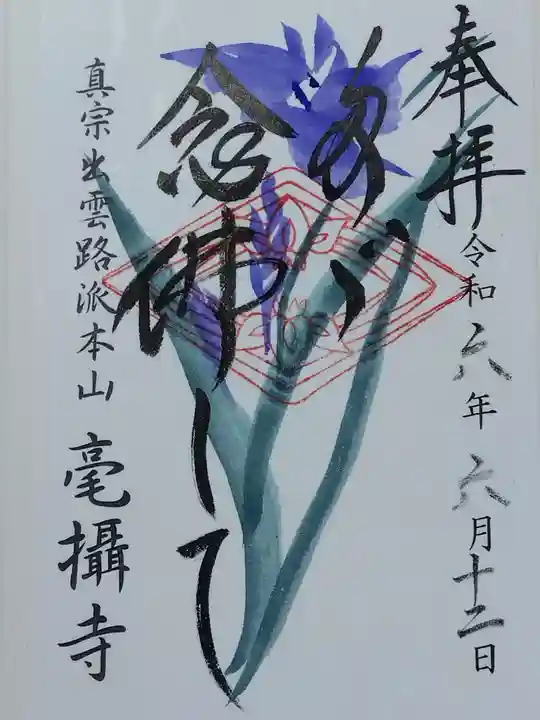 奉拝
令和六年六月十二日
念佛して
真宗出雲路派本山
毫攝寺